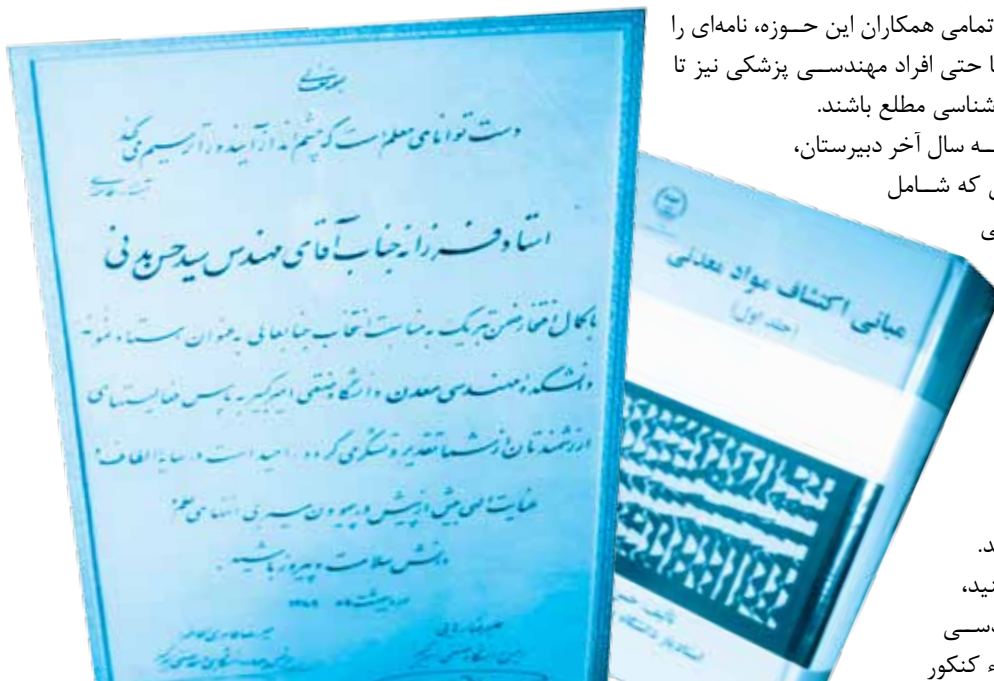 تمامی همکاران این حــوزه، نامه‌ای را
ا حتی افراد مهندســی پزشکی نیز تا
شناسی مطلع باشند.
ـه سال آخر دبیرستان،
که شــامل
ی
د.
نید،
دســی
ء کنکور
دست توانای معلم است که چشم‌انداز آینده را ترسیم می‌کند
استاد فــرزانه جناب آقای مهندس سید حسن مدنی
با کمال افتخار ضمن تبریک به مناسبت انتخاب جنابعالی به عنوان استاد نمونه
دانشکده مهندسی معدن دانشگاه صنعتی امیرکبیر به پاس فعالیتهای
ارزشمندتان از شما تقدیر و تشکر می گردد. امید است در سایه الطاف و
عنایت الهی بیش از پیش در پیمودن مسیر بی انتهای علم و
دانش سلامت و پیروز باشید.
مبانی اکتشاف مواد معدنی
(جلد اول)